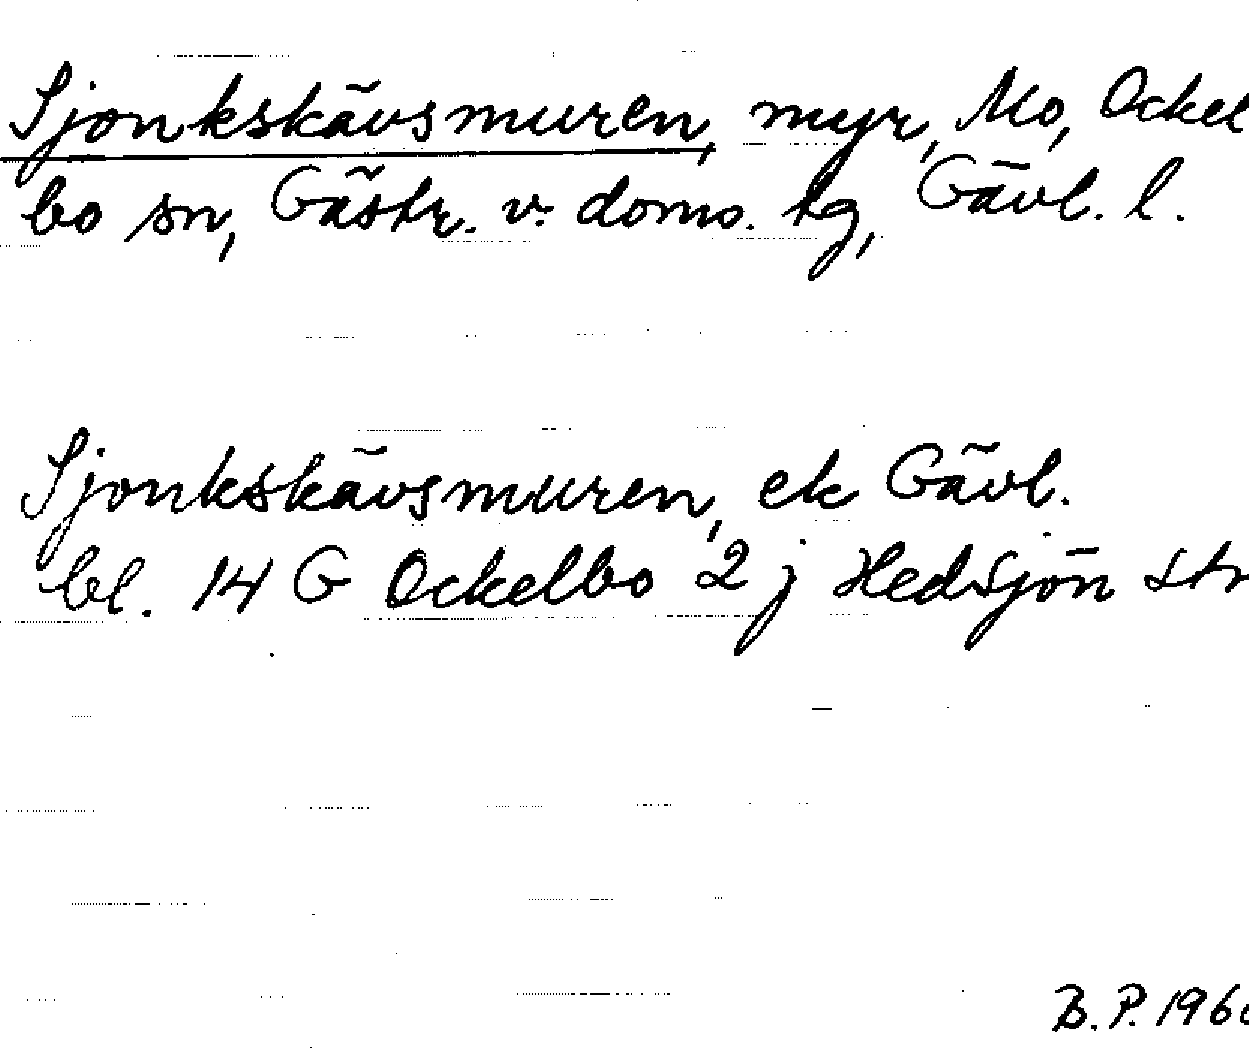 Sjonkskävsmuren, myr, Mo, Ockel
bo sn, Gästr. v. doms. tg, Gävl. l.
Sjonkskävsmuren, ek Gävl.
bl. 14 G Ockelbo 2 j Hedsjön str
B. P. 196